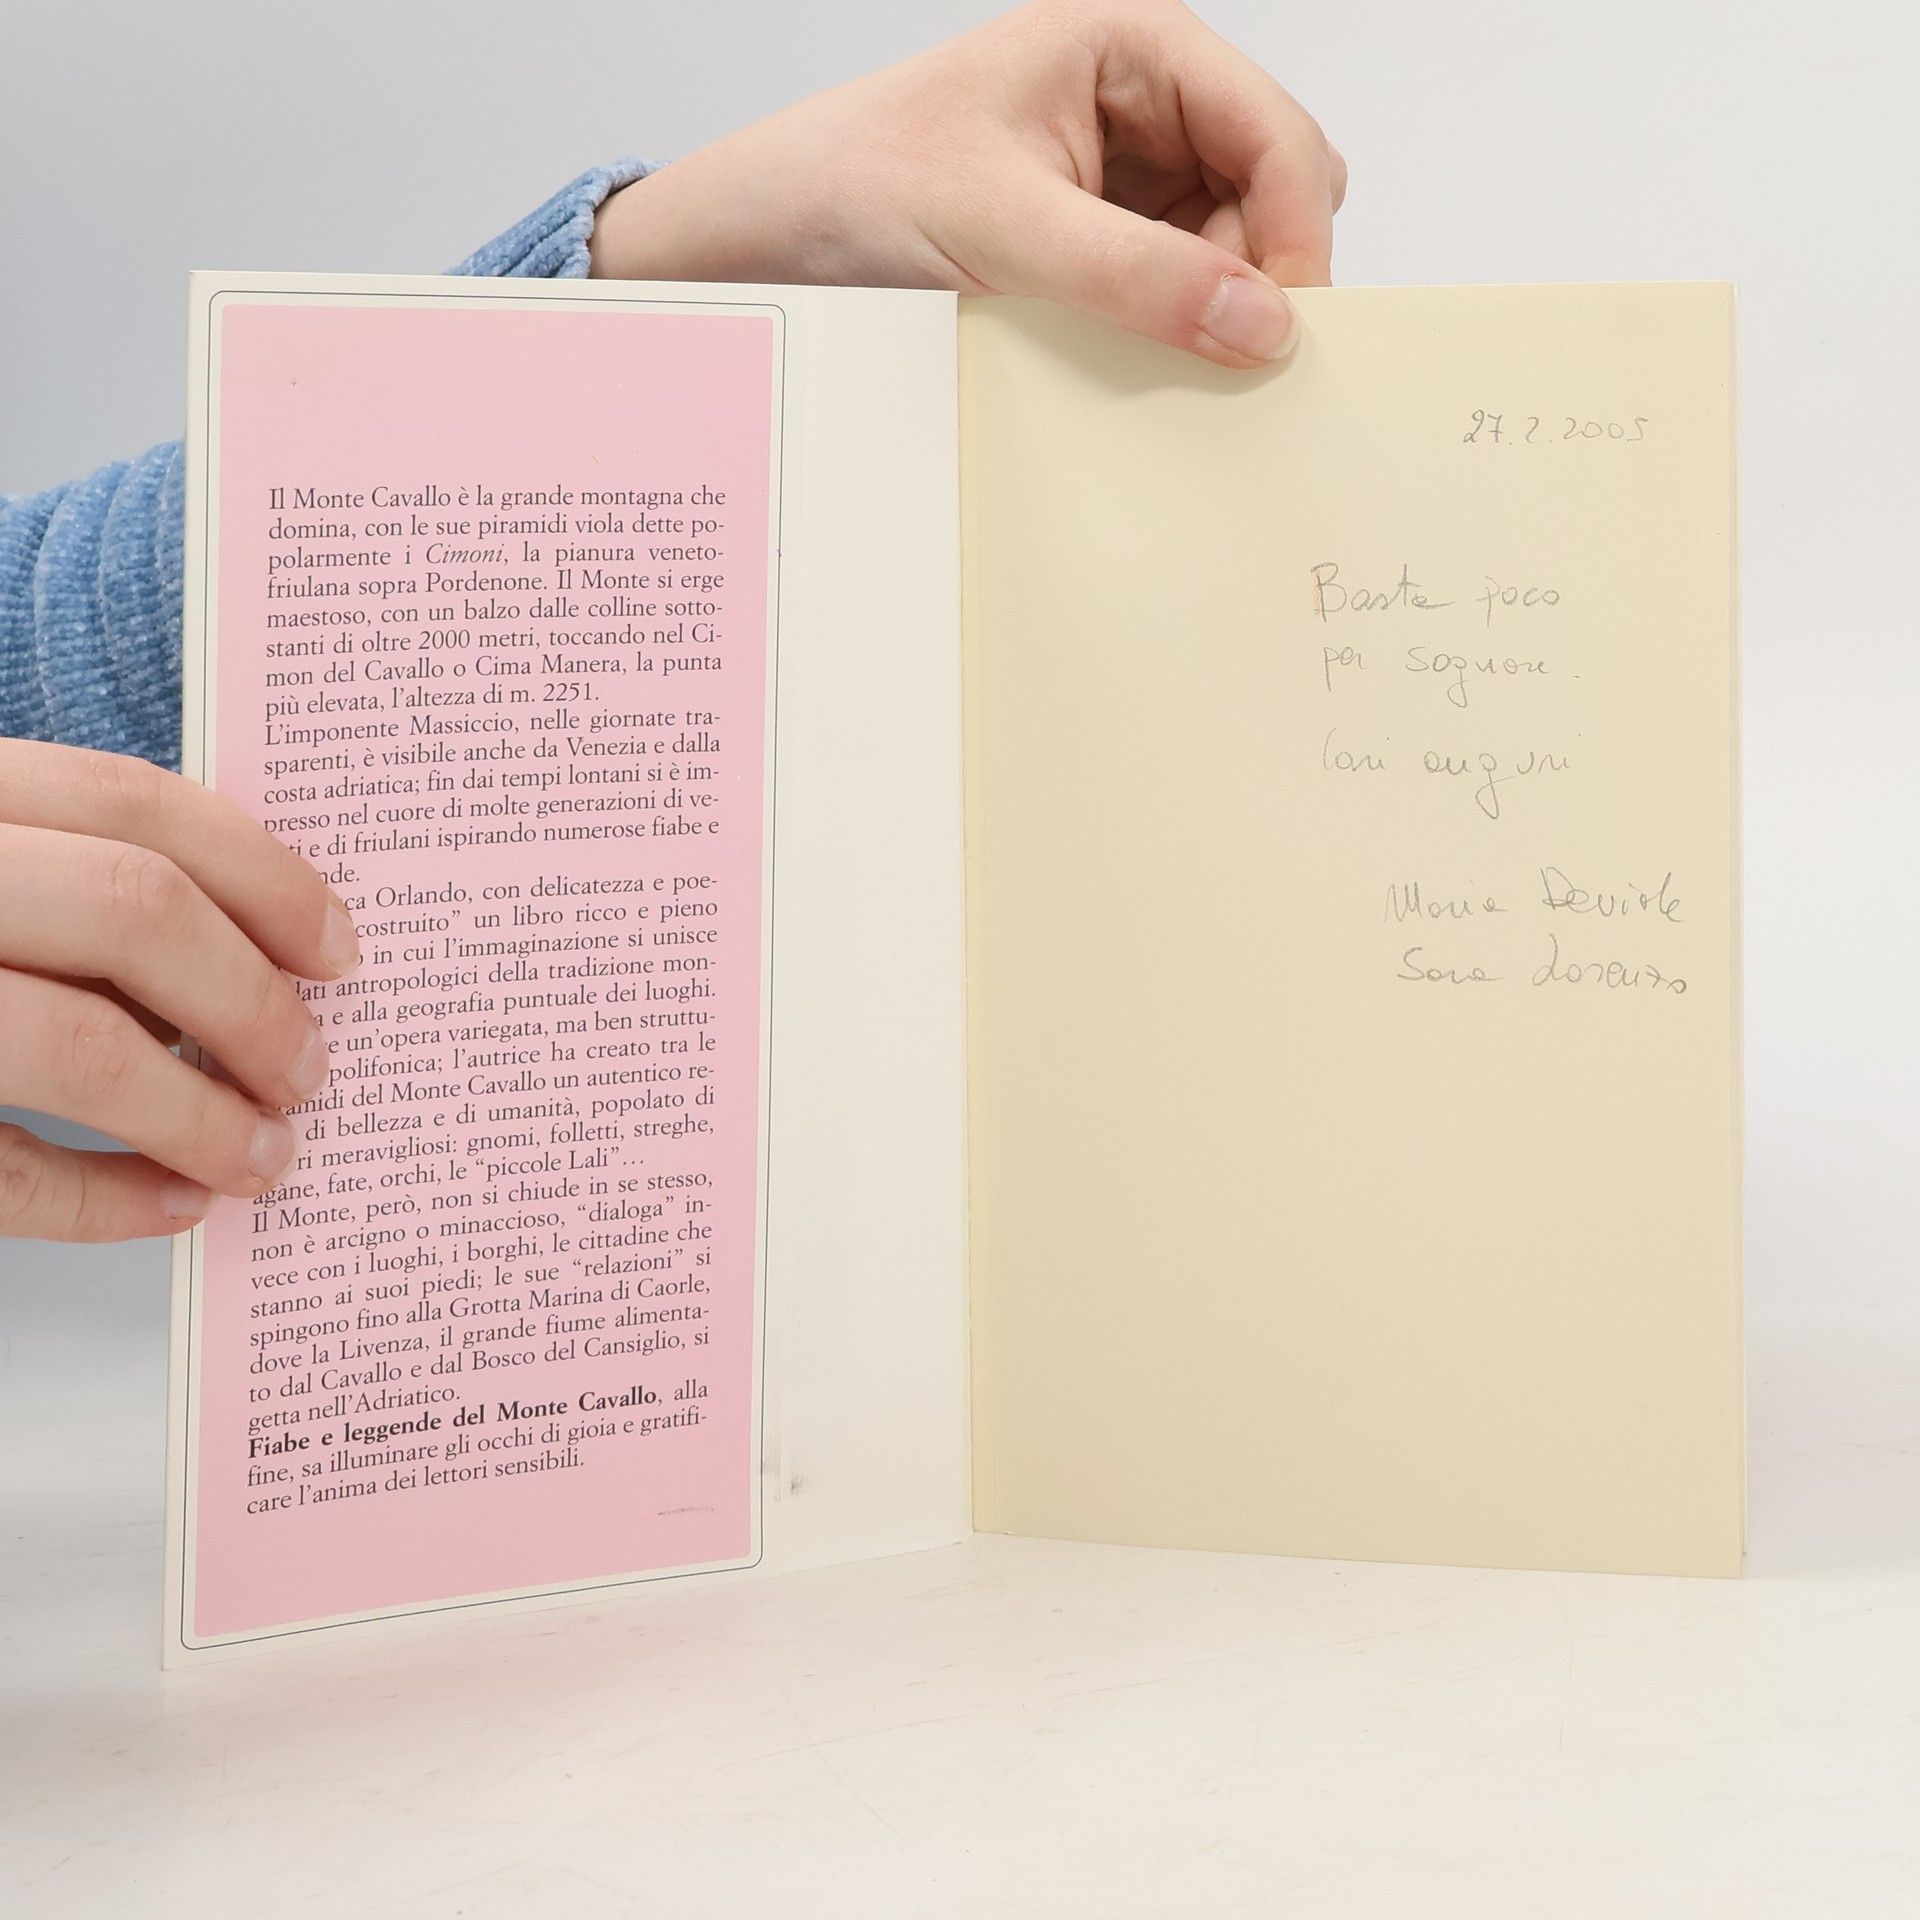 Il Monte Cavallo è la grande montagna che
domina, con le sue piramidi viola dette po-
polarmente i Cimoni, la pianura veneto-
friulana sopra Pordenone. Il Monte si erge
maestoso, con un balzo dalle colline sotto-
stanti di oltre 2000 metri, toccando nel Ci-
mon del Cavallo o Cima Manera, la punta
più elevata, l'altezza di m. 2251.
L'imponente Massiccio, nelle giornate tra-
sparenti, è visibile anche da Venezia e dalla
costa adriatica; fin dai tempi lontani si è im-
presso nel cuore di molte generazioni di ve-
ti e di friulani ispirando numerose fiabe e
nde.
ca Orlando, con delicatezza e poe-
costruito” un libro ricco e pieno
in cui l'immaginazione si unisce
dati antropologici della tradizione mon-
a e alla geografia puntuale dei luoghi.
e un'opera variegata, ma ben struttu-
polifonica; l'autrice ha creato tra le
amidi del Monte Cavallo un autentico re-
di bellezza e di umanità, popolato di
ri meravigliosi: gnomi, folletti, streghe,
agàne, fate, orchi, le “piccole Lali”…
Il Monte, però, non si chiude in se stesso,
non è arcigno o minaccioso, “dialoga” in-
vece con i luoghi, i borghi, le cittadine che
stanno ai suoi piedi; le sue “relazioni” si
spingono fino alla Grotta Marina di Caorle,
dove la Livenza, il grande fiume alimenta-
to dal Cavallo e dal Bosco del Cansiglio, si
getta nell'Adriatico.
Fiabe e leggende del Monte Cavallo, alla
fine, sa illuminare gli occhi di gioia e gratifi-
care l'anima dei lettori sensibili.
27.2.2005
Basta poco
per sognare.
Cari auguri
Maria
Sara Lorenzo